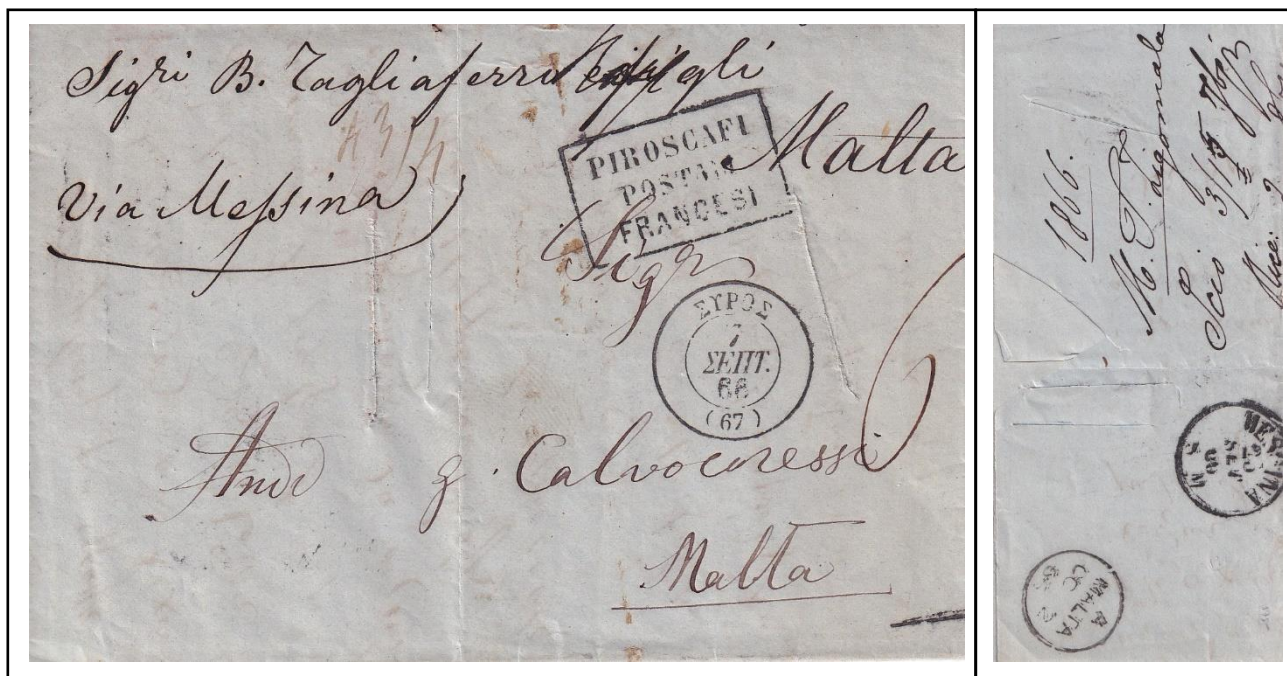 Sigri B. Tagliaferro e figli
Malta
Via Messina
PIROSCAFI
POSTALI
FRANCESI
Sigr
ΣΥΡΟΣ
7
ΣΕΠΤ.
66
(67)
And g. Calvocoressi
Malta
1866.
M.
Scio 3/15 7br
MESSINA
A
MALTA